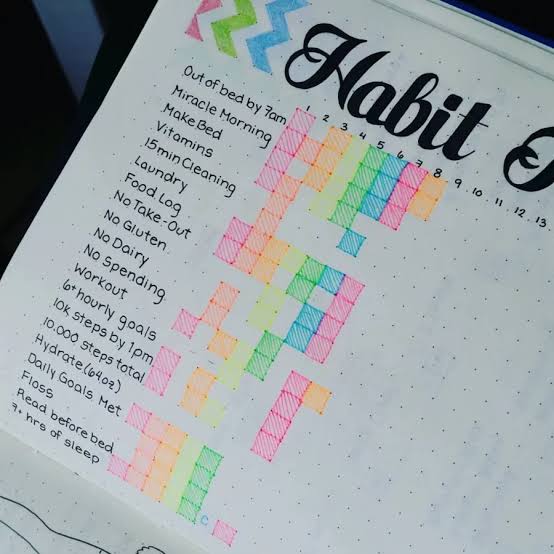 Habit
1 2 3 4 5 6 7 8 9 10 11 12 13
Out of bed by 7am
Miracle Morning
Make Bed
Vitamins
15min Cleaning
Laundry
Food Log
No Take-Out
No Gluten
No Dairy
No Spending
Workout
6+ hourly goals
10k steps by 1pm
10,000 steps total
Hydrate (64oz)
Daily Goals Met
Floss
Read before bed
7+ hrs of sleep
C